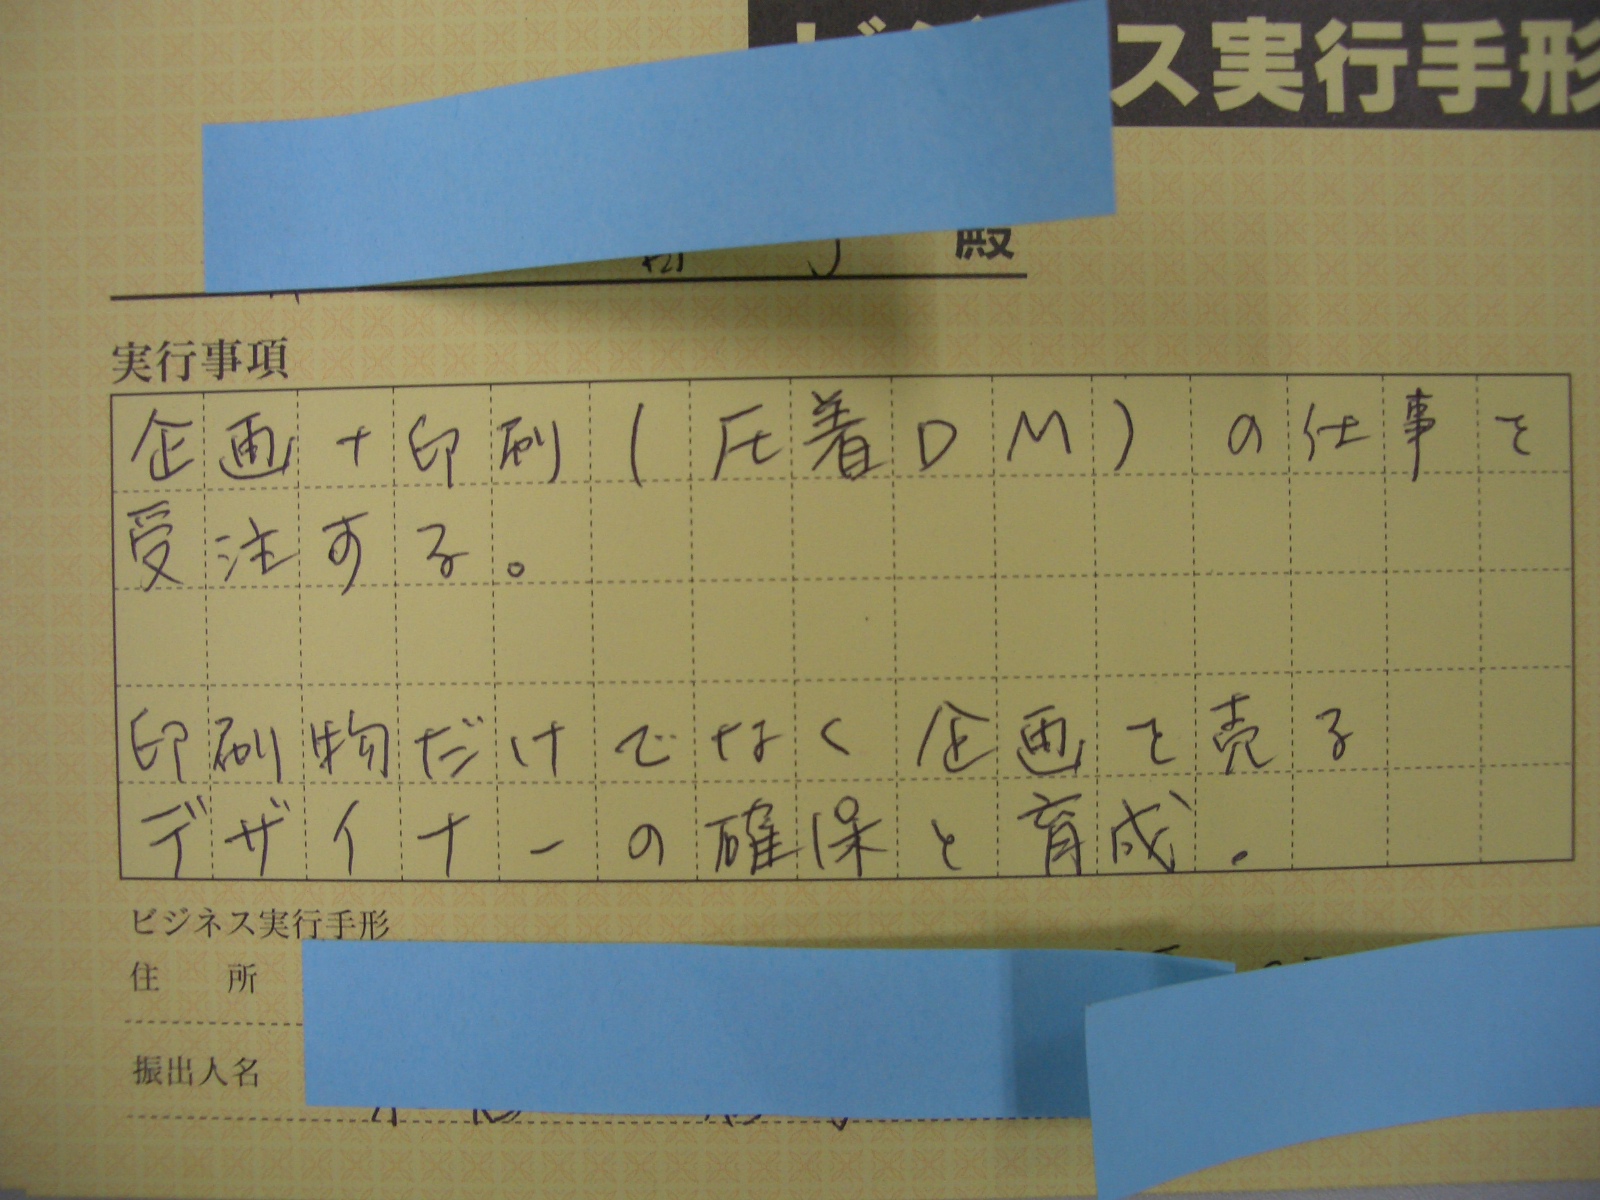 ス実行手形
殿
実行事項
企画+印刷(圧着DM)の仕事を
受注する。
印刷物だけでなく企画を売る
デザイナーの確保と育成.
ビジネス実行手形
住 所
振出人名